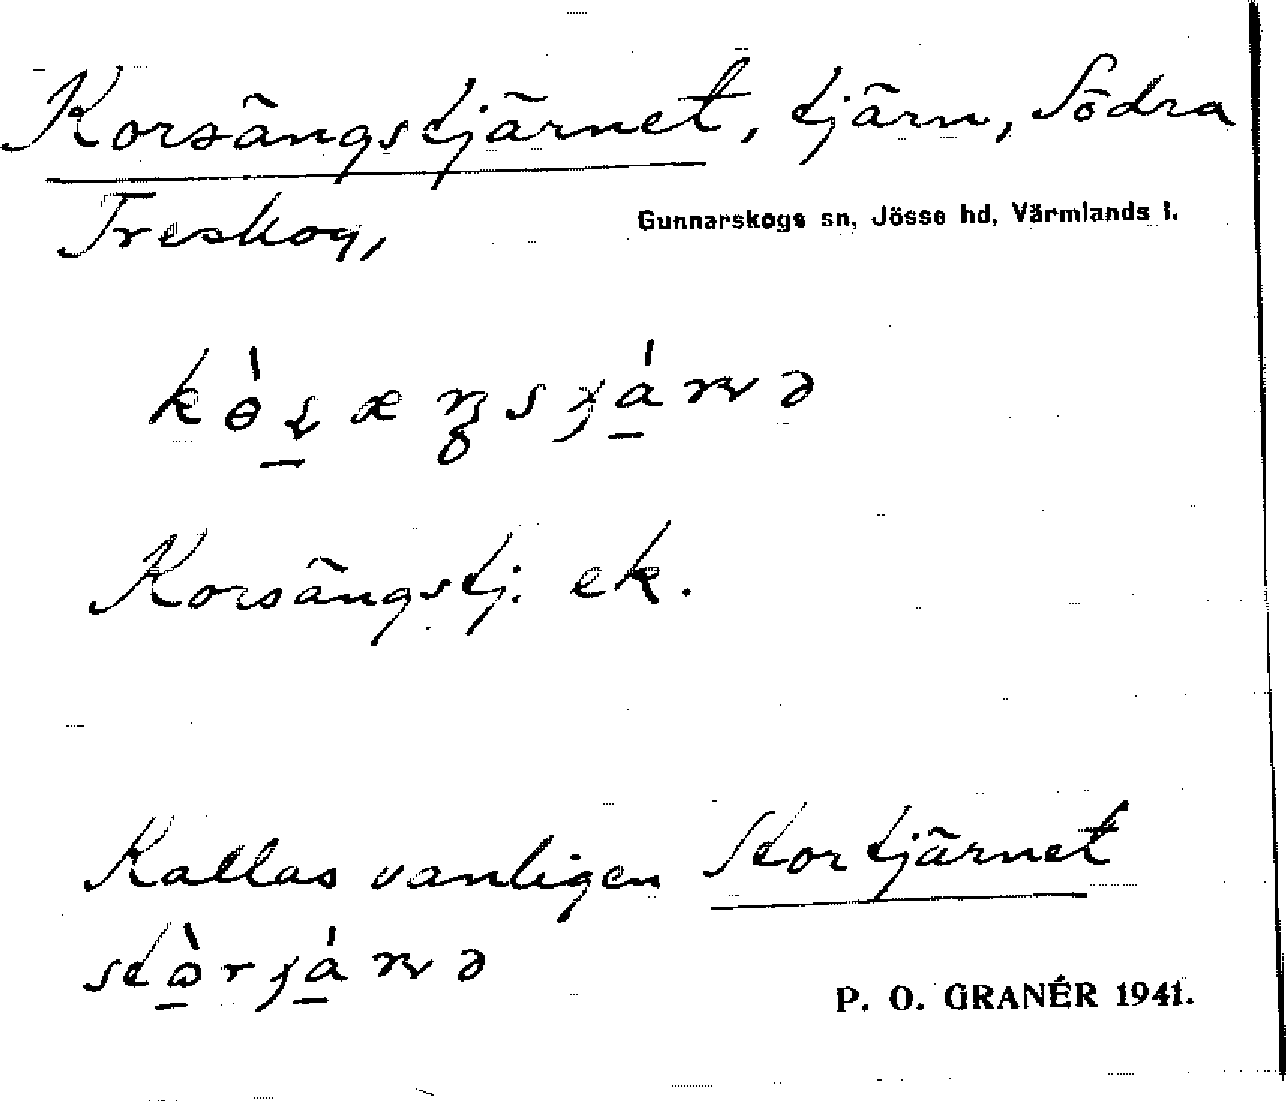 Korsängstjärnet, tjärn, Södra
Treskog,
Gunnarskogs sn, Jösse hd, Värmlands l.
Korsängstj. ek.
Kallas vanligen Stortjärnet
P. O. GRANÉR 1941.